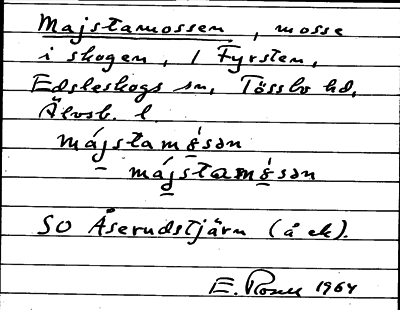 Majstamossen, mosse
i skogen, / Fyrsten,
Edsleskogs sn, Tössbo hd,
Älvsb. l.
májstamǿsən
májstamǿsən
SO Åserudstjärn (å ek).
E. Rosell 1964